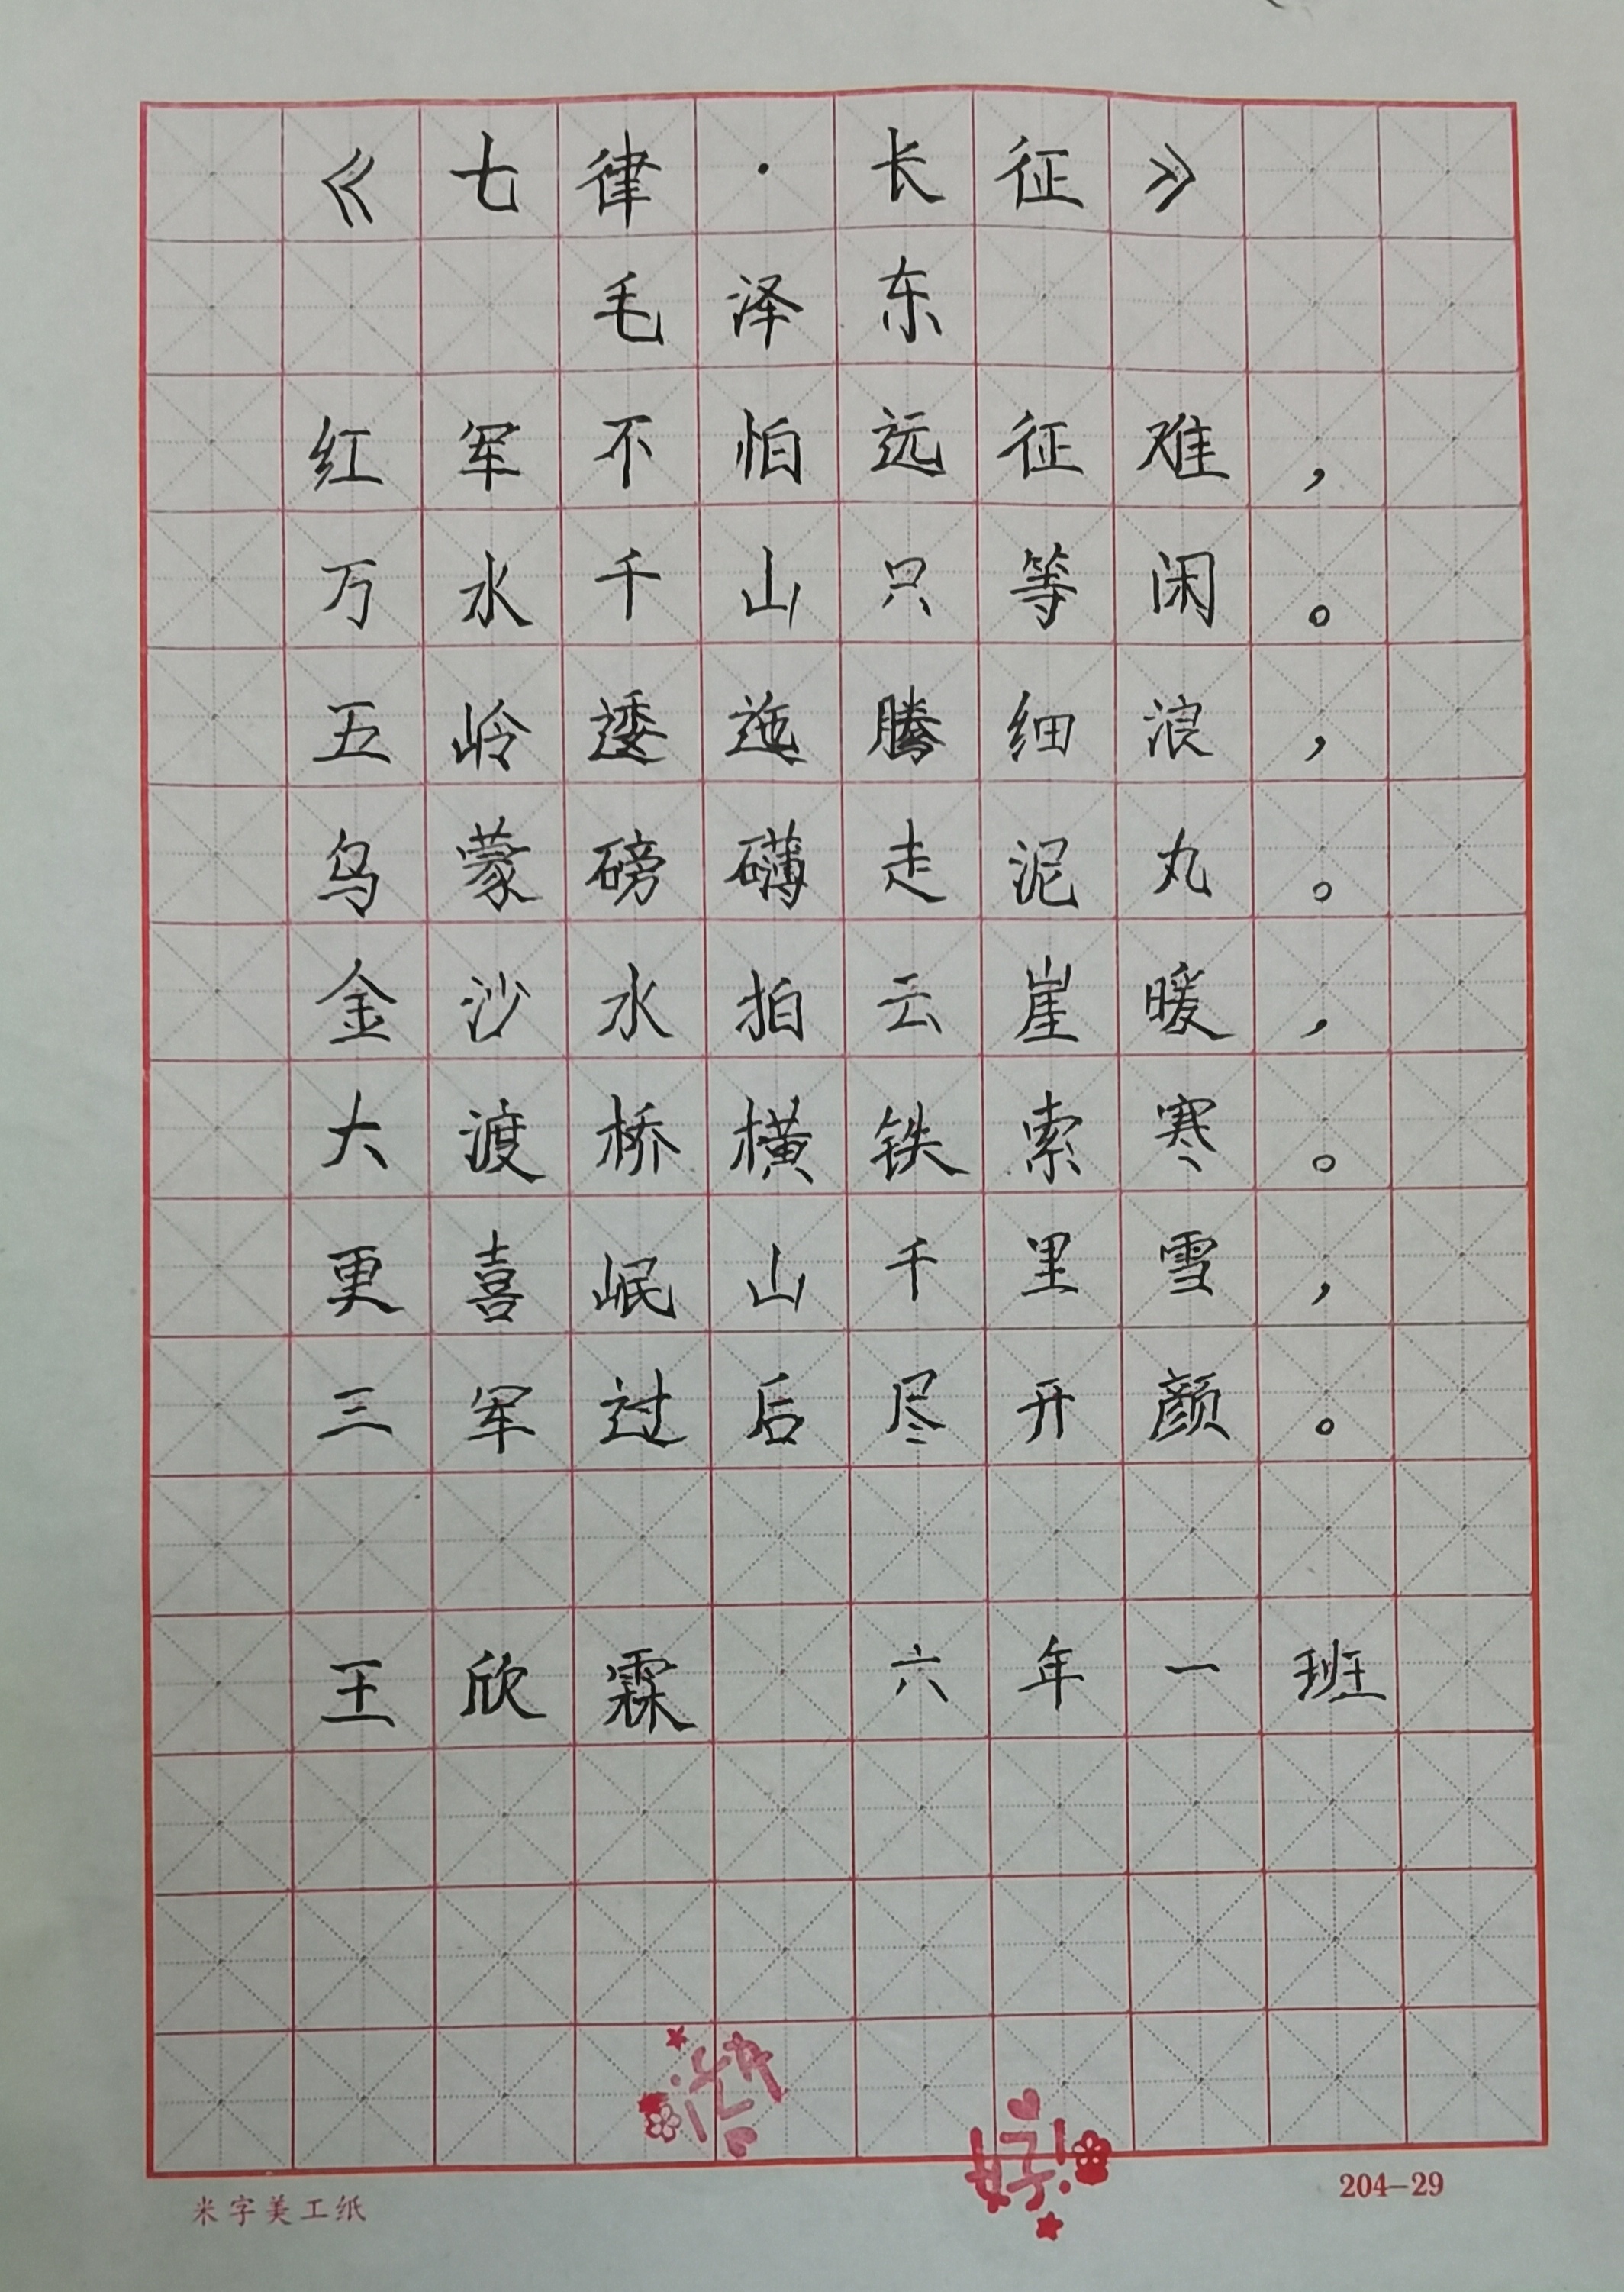 《七律·长征》
毛泽东
红军不怕远征难，
万水千山只等闲。
五岭逶迤腾细浪，
乌蒙磅礴走泥丸。
金沙水拍云崖暖，
大渡桥横铁索寒。
更喜岷山千里雪，
三军过后尽开颜。
王欣霖 六年一班
好！
米字美工纸 204-29